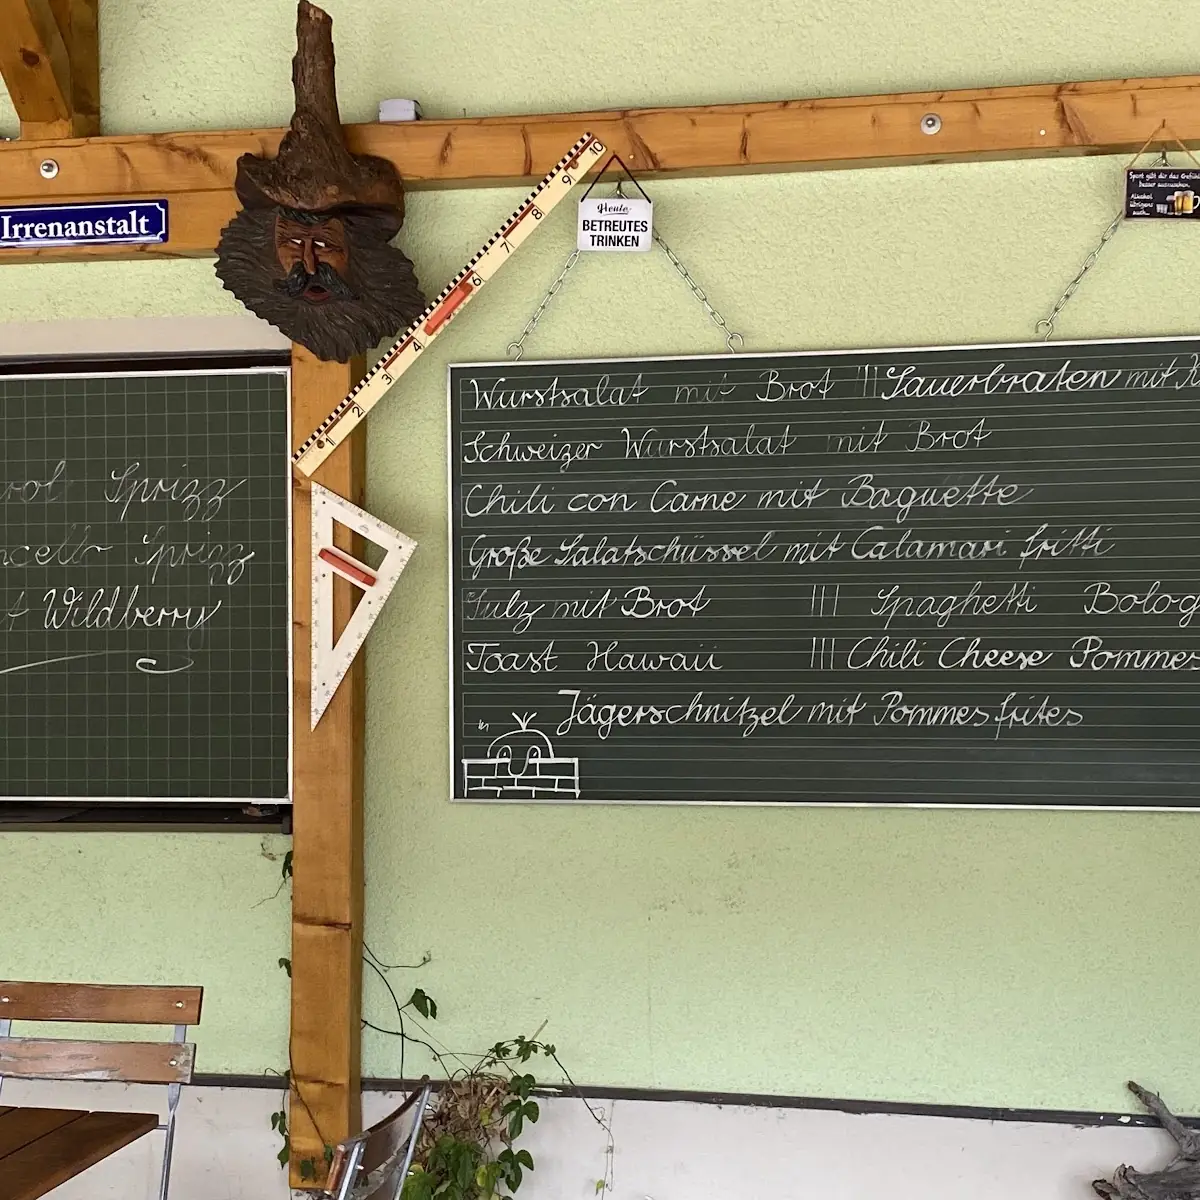 Irrenanstalt
Heute
BETREUTES
TRINKEN
Sport gibt dir das Gefühl
besser auszusehen.
Alkohol
übrigens
auch.
1 2 3 4 6 7 8 9 10
Sprizz
Sprizz
Wildberry
Wurstsalat mit Brot ||| Sauerbraten mit
Schweizer Wurstsalat mit Brot
Chili con Carne mit Baguette
Große Salatschüssel mit Calamari fritti
Sulz mit Brot ||| Spaghetti Bolog
Toast Hawaii ||| Chili Cheese Pommes
Jägerschnitzel mit Pommes frites